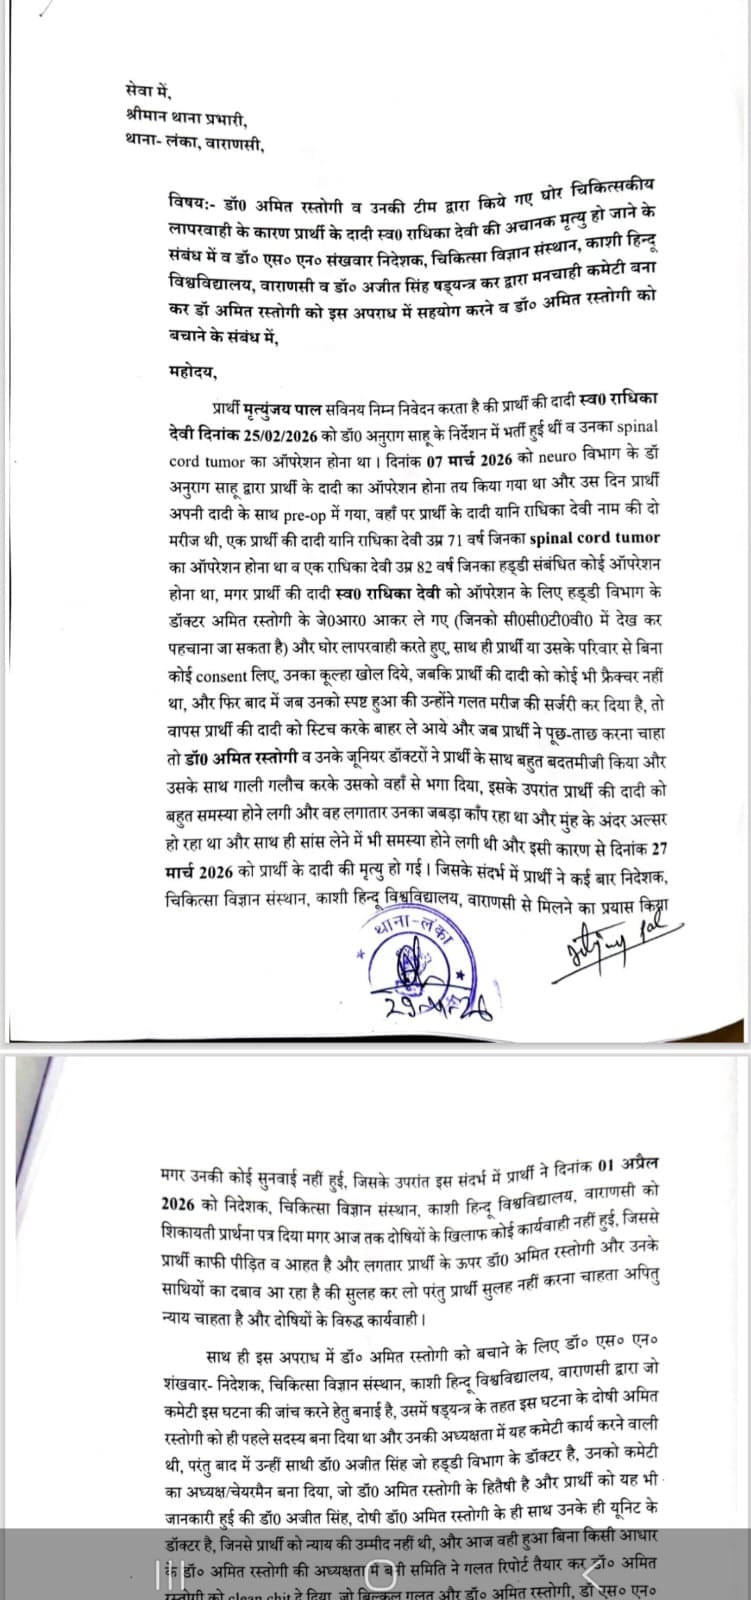 सेवा में,
श्रीमान थाना प्रभारी,
थाना- लंका, वाराणसी,
विषय:- डॉ0 अमित रस्तोगी व उनकी टीम द्वारा किये गए घोर चिकित्सकीय
लापरवाही के कारण प्रार्थी के दादी स्व0 राधिका देवी की अचानक मृत्यु हो जाने के
संबंध में व डॉ० एस० एन० संखवार निदेशक, चिकित्सा विज्ञान संस्थान, काशी हिन्दू
विश्वविद्यालय, वाराणसी व डॉ० अजीत सिंह षड्यन्त्र कर द्वारा मनचाही कमेटी बना
कर डॉ अमित रस्तोगी को इस अपराध में सहयोग करने व डॉ० अमित रस्तोगी को
बचाने के संबंध में,
महोदय,
प्रार्थी मृत्युंजय पाल सविनय निम्न निवेदन करता है की प्रार्थी की दादी स्व0 राधिका
देवी दिनांक 25/02/2026 को डॉ0 अनुराग साहू के निर्देशन में भर्ती हुई थीं व उनका spinal
cord tumor का ऑपरेशन होना था। दिनांक 07 मार्च 2026 को neuro विभाग के डॉ
अनुराग साहू द्वारा प्रार्थी के दादी का ऑपरेशन होना तय किया गया था और उस दिन प्रार्थी
अपनी दादी के साथ pre-op में गया, वहाँ पर प्रार्थी के दादी यानि राधिका देवी नाम की दो
मरीज थी, एक प्रार्थी की दादी यानि राधिका देवी उम्र 71 वर्ष जिनका spinal cord tumor
का ऑपरेशन होना था व एक राधिका देवी उम्र 82 वर्ष जिनका हड्डी संबंधित कोई ऑपरेशन
होना था, मगर प्रार्थी की दादी स्व0 राधिका देवी को ऑपरेशन के लिए हड्डी विभाग के
डॉक्टर अमित रस्तोगी के जे0आर0 आकर ले गए (जिनको सी0सी0टी0वी0 में देख कर
पहचाना जा सकता है) और घोर लापरवाही करते हुए, साथ ही प्रार्थी या उसके परिवार से बिना
कोई consent लिए, उनका कूल्हा खोल दिये, जबकि प्रार्थी की दादी को कोई भी फ्रैक्चर नहीं
था, और फिर बाद में जब उनको स्पष्ट हुआ की उन्होंने गलत मरीज की सर्जरी कर दिया है, तो
वापस प्रार्थी की दादी को स्टिच करके बाहर ले आये और जब प्रार्थी ने पूछ-ताछ करना चाहा
तो डॉ0 अमित रस्तोगी व उनके जूनियर डॉक्टरों ने प्रार्थी के साथ बहुत बदतमीजी किया और
उसके साथ गाली गलौच करके उसको वहाँ से भगा दिया, इसके उपरांत प्रार्थी की दादी को
बहुत समस्या होने लगी और वह लगातार उनका जबड़ा काँप रहा था और मुंह के अंदर अल्सर
हो रहा था और साथ ही सांस लेने में भी समस्या होने लगी थी और इसी कारण से दिनांक 27
मार्च 2026 को प्रार्थी के दादी की मृत्यु हो गई। जिसके संदर्भ में प्रार्थी ने कई बार निदेशक,
चिकित्सा विज्ञान संस्थान, काशी हिन्दू विश्वविद्यालय, वाराणसी से मिलने का प्रयास किया
थाना-लंका
मगर उनकी कोई सुनवाई नहीं हुई, जिसके उपरांत इस संदर्भ में प्रार्थी ने दिनांक 01 अप्रैल
2026 को निदेशक, चिकित्सा विज्ञान संस्थान, काशी हिन्दू विश्वविद्यालय, वाराणसी को
शिकायती प्रार्थना पत्र दिया मगर आज तक दोषियों के खिलाफ कोई कार्यवाही नहीं हुई, जिससे
प्रार्थी काफी पीड़ित व आहत है और लगतार प्रार्थी के ऊपर डॉ0 अमित रस्तोगी और उनके
साथियों का दबाव आ रहा है की सुलह कर लो परंतु प्रार्थी सुलह नहीं करना चाहता अपितु
न्याय चाहता है और दोषियों के विरुद्ध कार्यवाही।
साथ ही इस अपराध में डॉ० अमित रस्तोगी को बचाने के लिए डॉ० एस० एन०
शंखवार- निदेशक, चिकित्सा विज्ञान संस्थान, काशी हिन्दू विश्वविद्यालय, वाराणसी द्वारा जो
कमेटी इस घटना की जांच करने हेतु बनाई है, उसमें षड्यन्त्र के तहत इस घटना के दोषी अमित
रस्तोगी को ही पहले सदस्य बना दिया था और उनकी अध्यक्षता में यह कमेटी कार्य करने वाली
थी, परंतु बाद में उन्हीं साथी डॉ0 अजीत सिंह जो हड्डी विभाग के डॉक्टर है, उनको कमेटी
का अध्यक्ष/चेयरमैन बना दिया, जो डॉ0 अमित रस्तोगी के हितैषी है और प्रार्थी को यह भी
जानकारी हुई की डॉ0 अजीत सिंह, दोषी डॉ0 अमित रस्तोगी के ही साथ उनके ही यूनिट के
डॉक्टर है, जिनसे प्रार्थी को न्याय की उम्मीद नहीं थी, और आज वही हुआ बिना किसी आधार
के डॉ० अमित रस्तोगी की अध्यक्षता में बनी समिति ने गलत रिपोर्ट तैयार कर डॉ० अमित
रस्तोगी को clean chit दे दिया, जो बिल्कुल गलत और डॉ० अमित रस्तोगी, डॉ एस० एन०